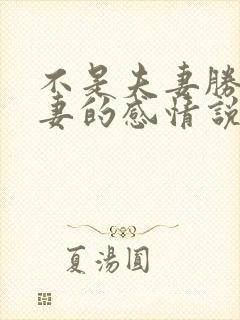 不是夫妻勝
妻的感情說
夏湯圓